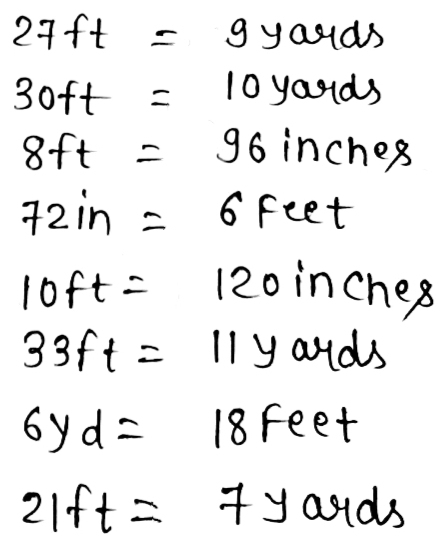 27ft = 9 yards
30ft = 10 yards
8ft = 96 inches
72in = 6 Feet
10ft = 120 inches
33ft = 11 yards
6yd = 18 Feet
21ft = 7 yards